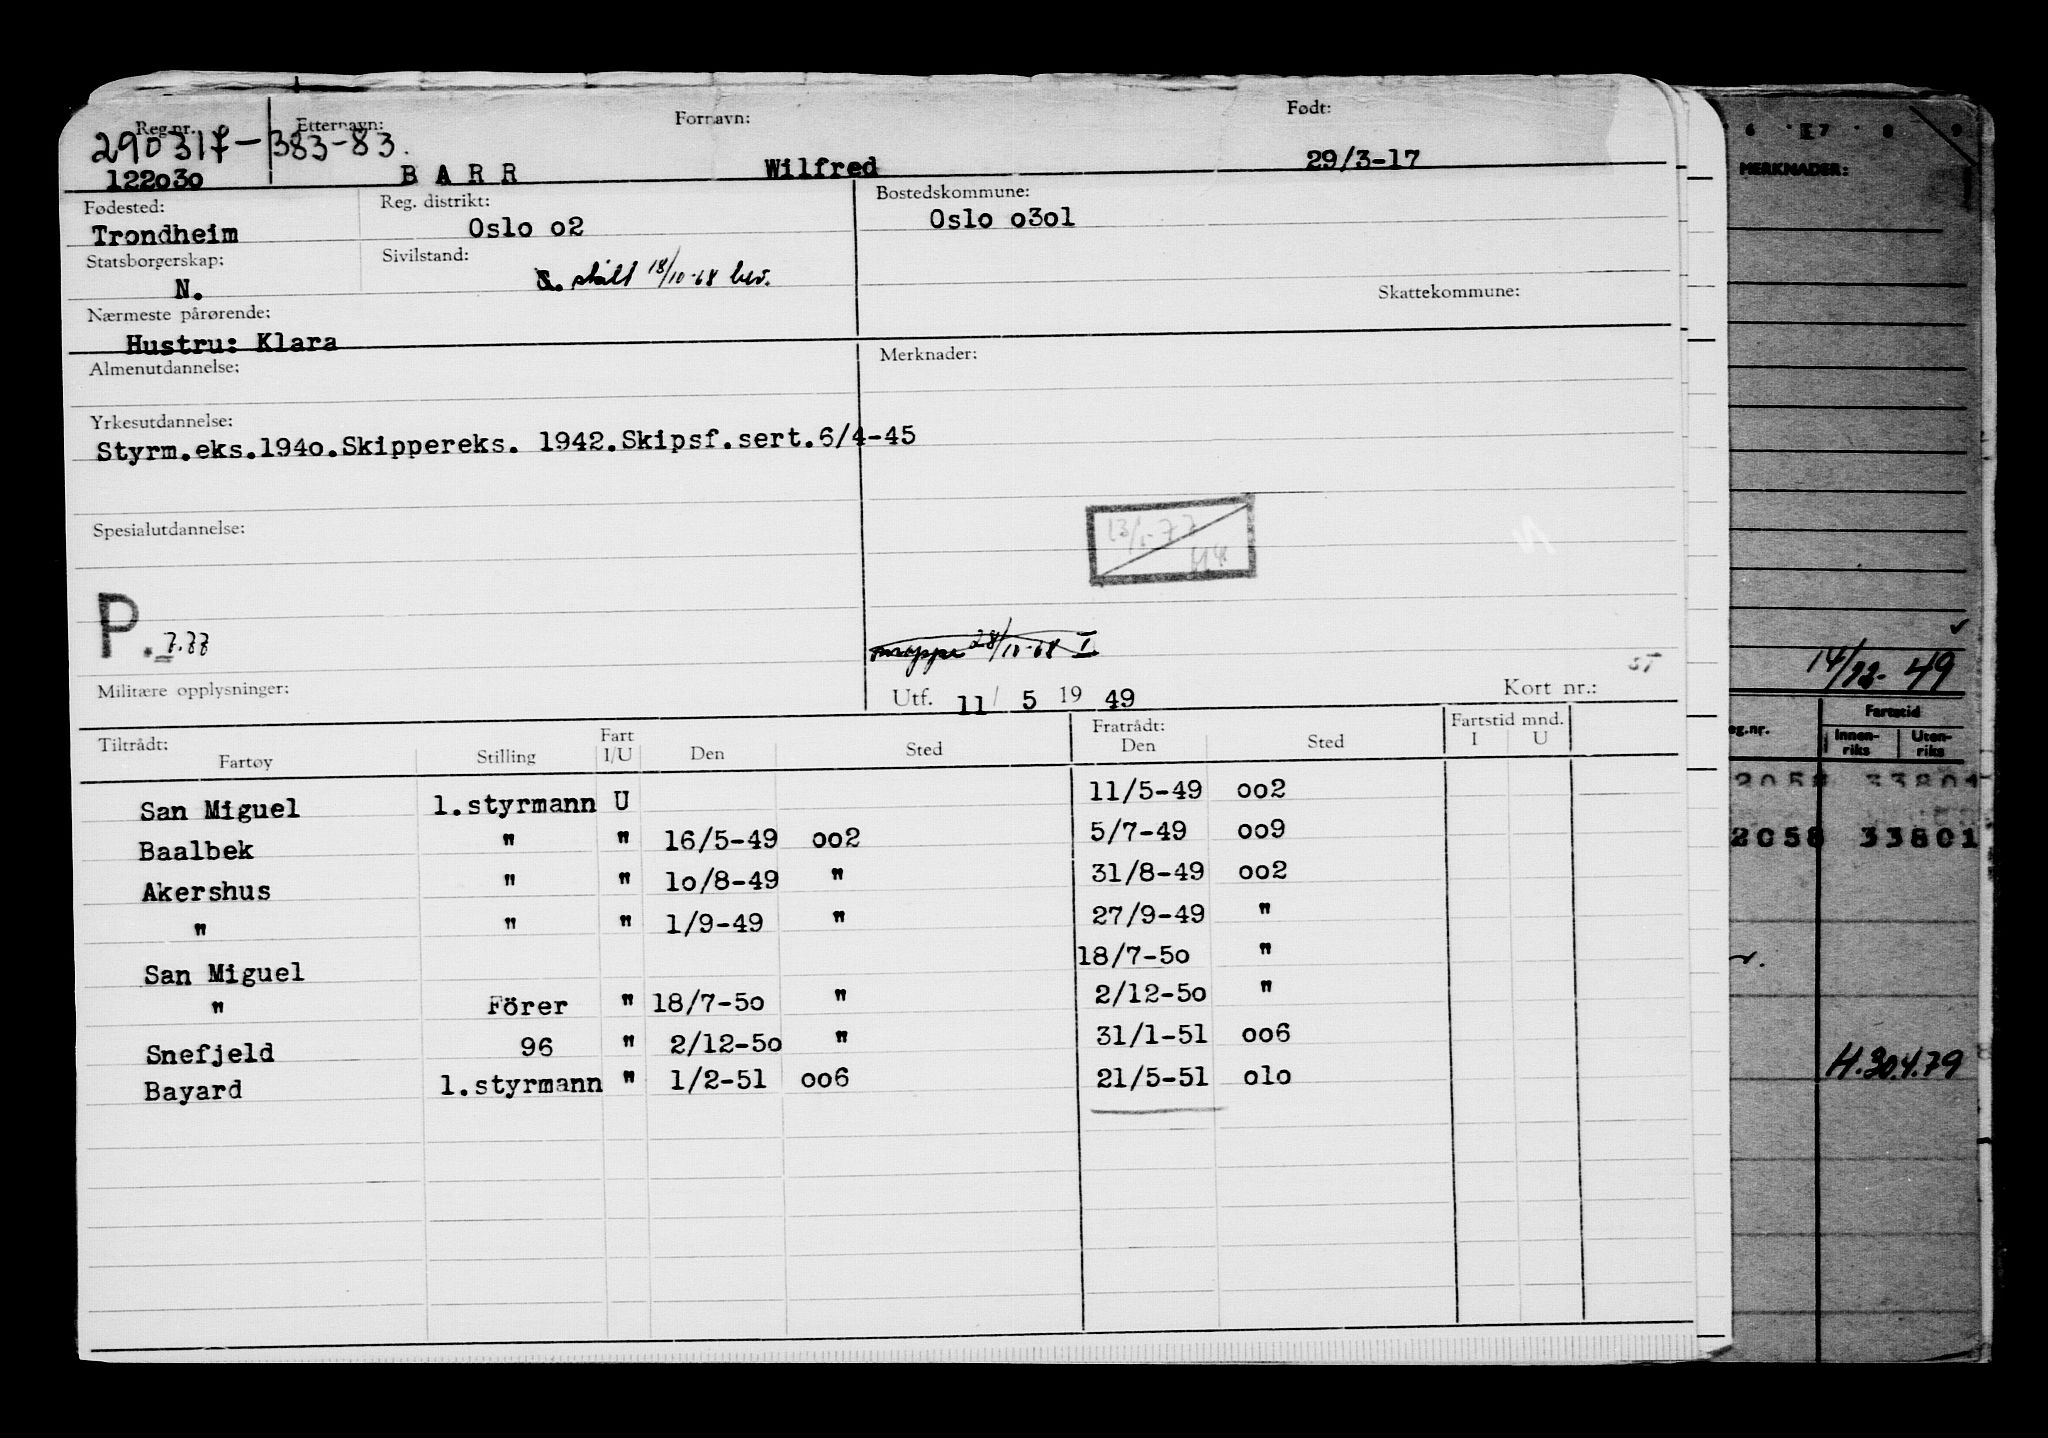 Reg.nr. Etternavn: Fornavn: Født:
290317-383-83.
122o3o B A R R Wilfred 29/3-17
Fødested: Reg. distrikt: Bostedskommune:
Trondheim Oslo o2 Oslo o3o1
Statsborgerskap: Sivilstand:
N. skilt 18/10-68 bev.
Skattekommune:
Nærmeste pårørende:
Hustru: Klara
Almenutdannelse: Merknader:
Yrkesutdannelse:
Styrm.eks.194o.Skippereks. 1942.Skipsf.sert.6/4-45
Spesialutdannelse:
P. 7.77
28/10-68 I
ST
Militære opplysninger: Utf. 11/ 5 19 49 Kort nr.:
Tiltrådt: Fratrådt: Fartstid mnd.
Fartøy Stilling Fart I/U Den Sted Den Sted I U
San Miguel 1.styrmann U 11/5-49 oo2
Baalbek " " 16/5-49 oo2 5/7-49 oo9
Akershus " " 1o/8-49 " 31/8-49 oo2
" " " 1/9-49 " 27/9-49 "
San Miguel 18/7-5o "
" Förer " 18/7-5o " 2/12-5o "
Snefjeld 96 " 2/12-5o " 31/1-51 oo6
Bayard 1.styrmann " 1/2-51 oo6 21/5-51 o1o
6 7 8 9
MERKNADER:
14/12-49
eg.nr. Fartstid
Innen-riks Uten-riks
2058 33801
2058 33801
H.30.4.79